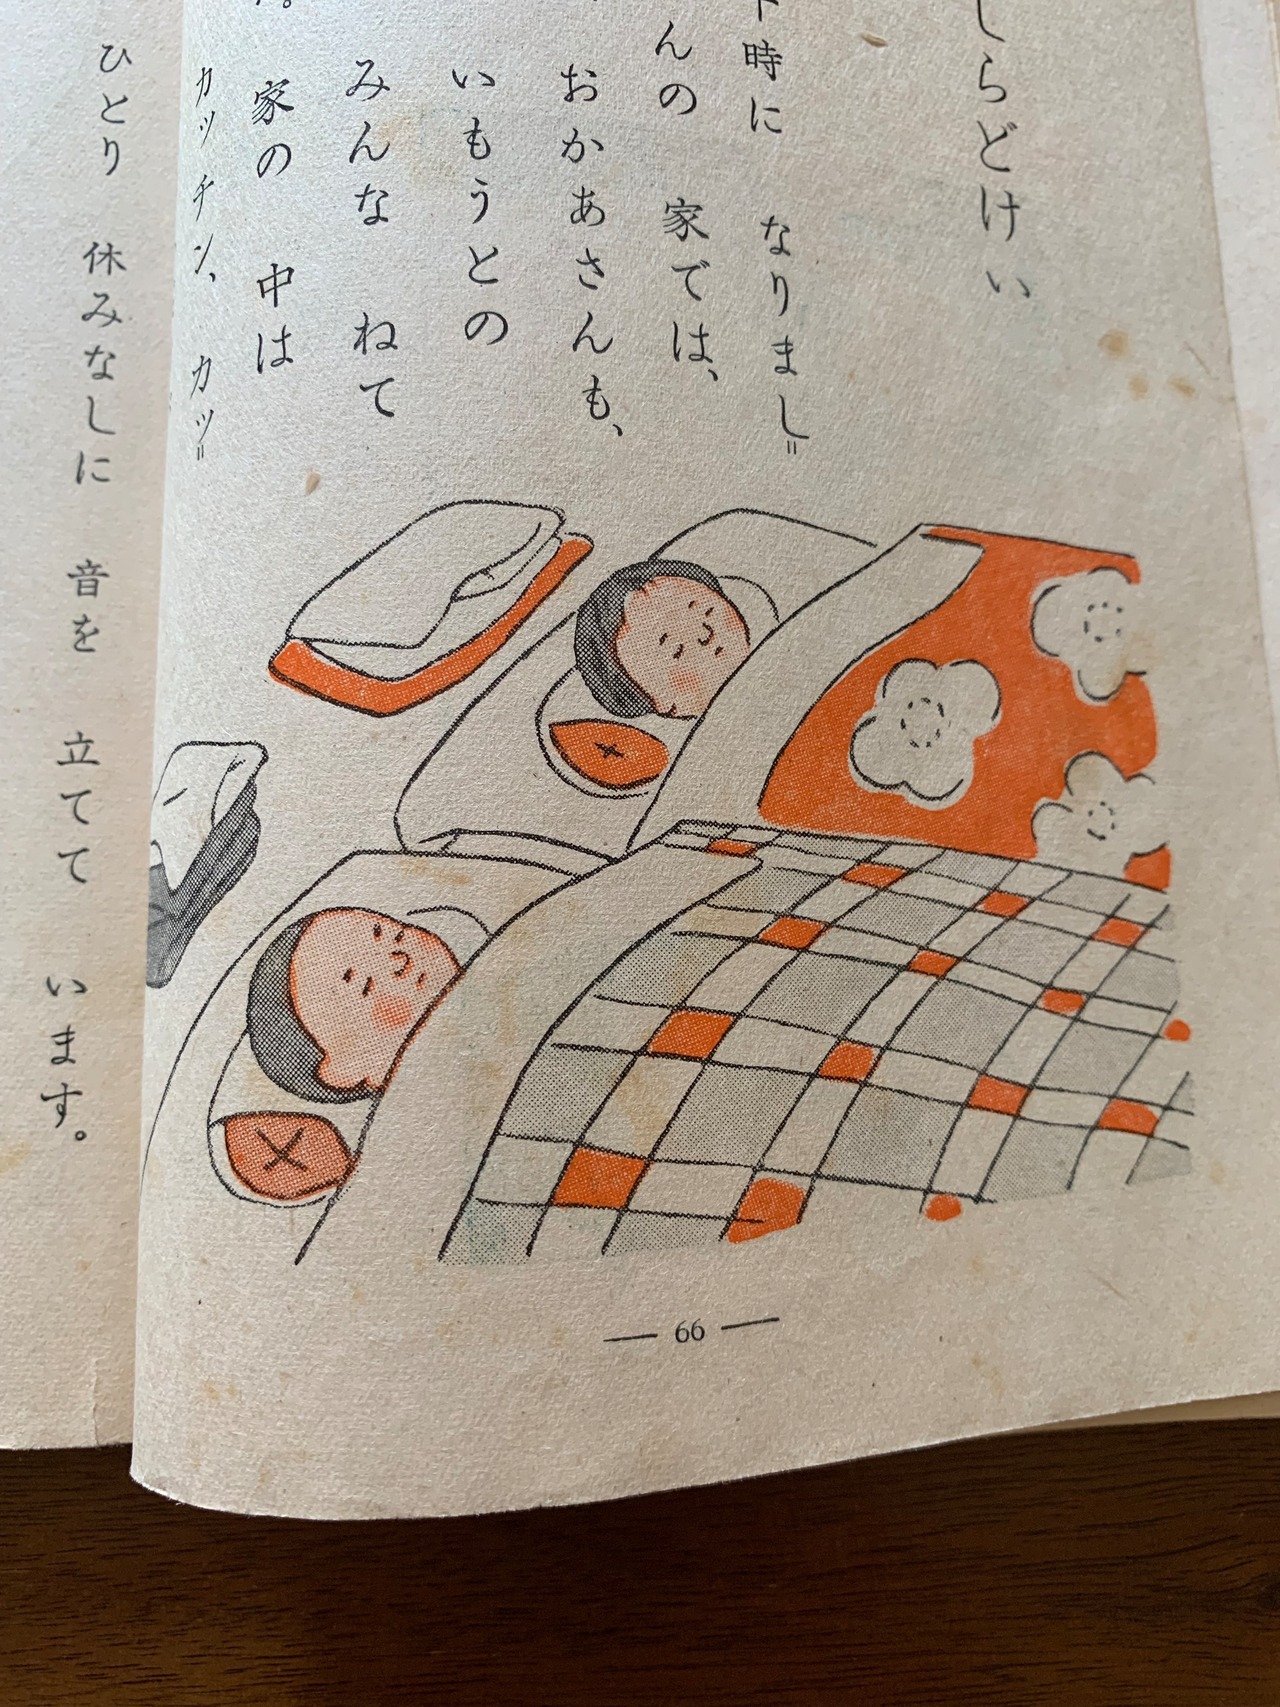 しらどけい
時に なりまし＝
んの 家では、
おかあさんも、
いもうとの
みんな ねて
家の 中は
カッチン、カッ＝
ひとり 休みなしに 音を 立てて います。
— 66 —